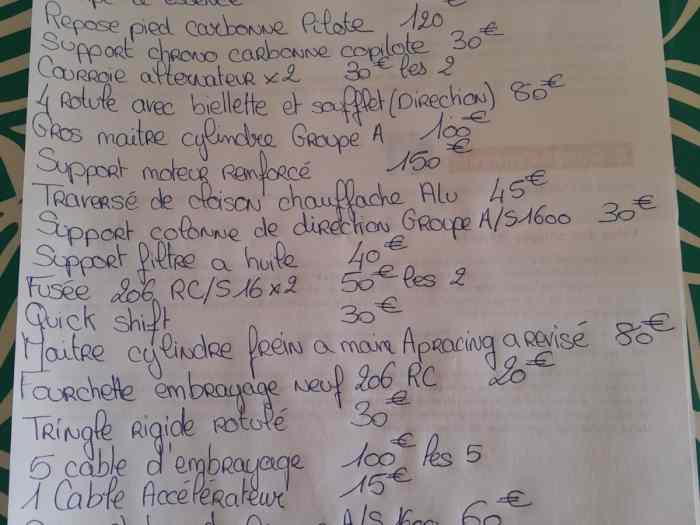 essence
Repose pied carbonne Pilote 120
Support chrono carbonne copilote 30€
Courroie alternateur x2 30€ les 2
4 Rotule avec biellette et soufflet (Direction) 80€
Gros maitre cylindre Groupe A 100€
Support moteur Renforcé 150€
Traversé de cloison chauffache Alu 45€
Support colonne de direction Groupe A/S1600 30€
Support filtre a huile 40€
Fusée 206 RC/S16 x2 50€ les 2
Quick shift 30€
Maitre cylindre frein a main Apracing a revisé 80€
Fourchette embrayage neuf 206 RC 20€
Tringle rigide rotulé 30€
5 cable d'embrayage 100€ les 5
1 Cable Accélérateur 15€
A/S1600 60€